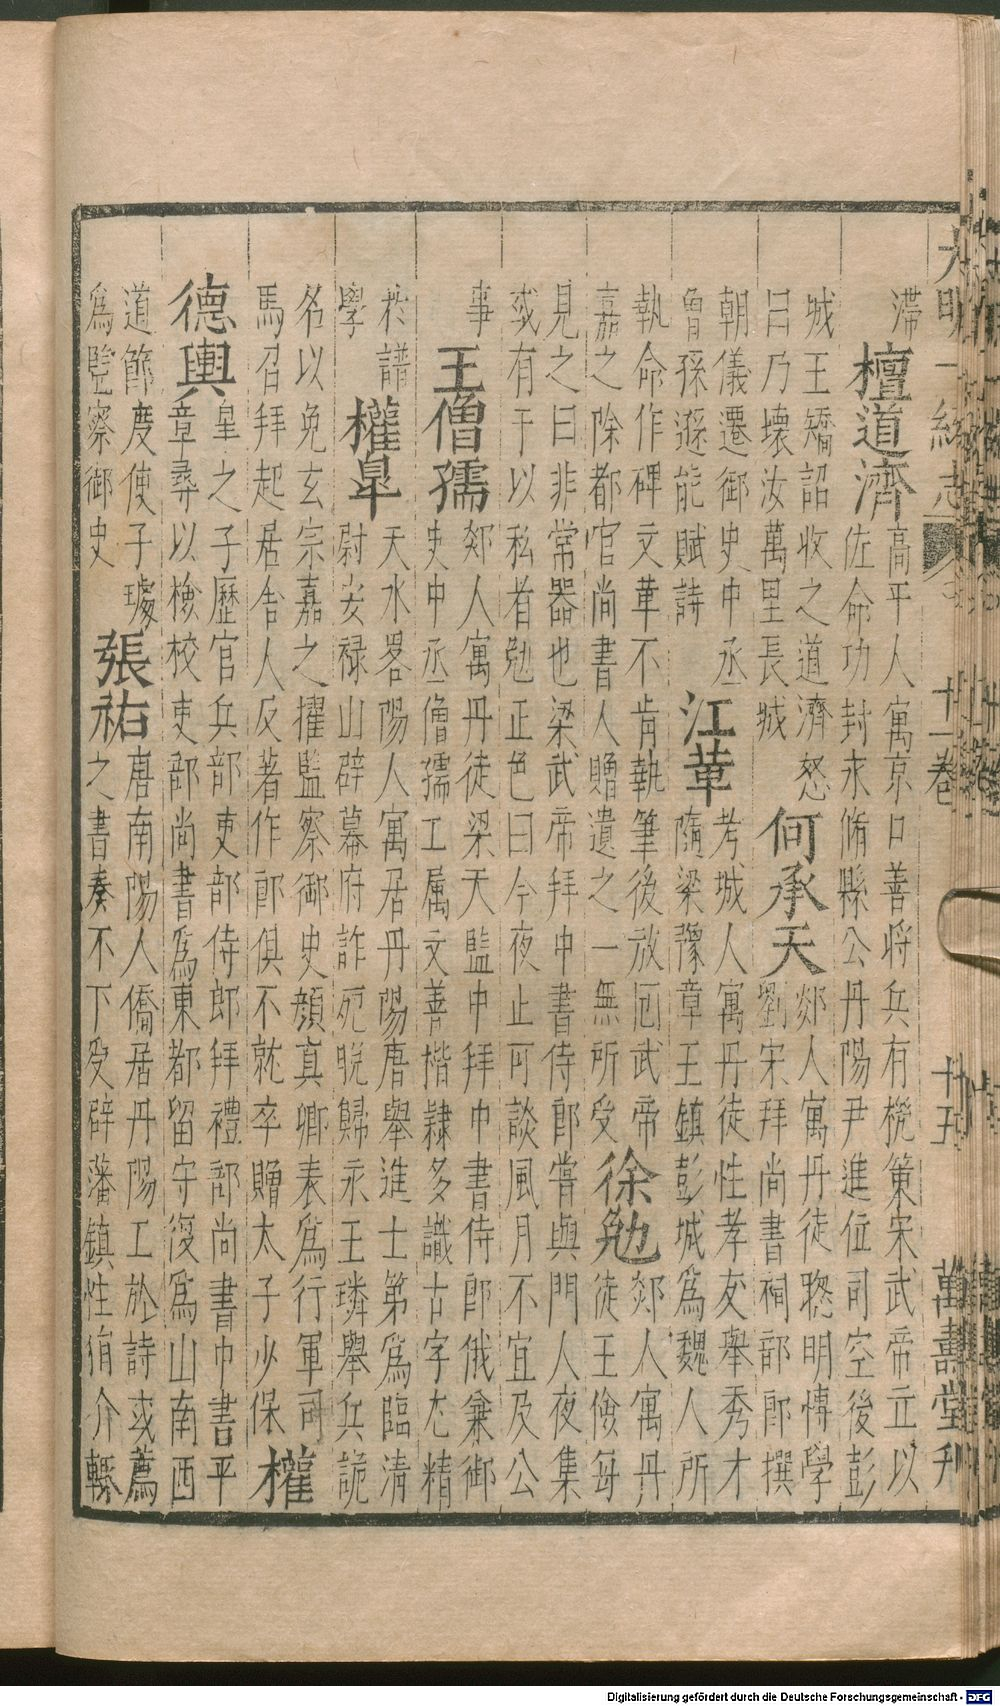 大明一統志 十一卷 廿五 萬壽堂刋
滯
檀道濟
高平人寓京口善將兵有機策宋武帝立以
佐命功封永脩縣公丹陽尹進位司空後彭
城王矯詔收之道濟怒
曰乃壞汝萬里長城
何承天
郯人寓丹徒聰明博學
劉宋拜尚書祠部郎撰
朝儀遷御史中丞
曾孫遜能賦詩
江革
考城人寓丹徒性孝友舉秀才
隨梁豫章王鎮彭城爲魏人所
執命作碑文革不肯執筆後放囘武帝
嘉之除都官尚書人贈遺之一無所受
徐勉
郯人寓丹
徒王儉每
見之曰非常器也梁武帝拜中書侍郎嘗與門人夜集
或有干以私者勉正色曰今夜止可談風月不宜及公
事
王僧孺
郯人寓丹徒梁天監中拜中書侍郎俄兼御
史中丞僧孺工属文善楷隸多識古字尤精
於譜
學
權皐
天水畧陽人寓居丹陽唐舉進士第爲臨清
尉安禄山辟幕府詐死脫歸永王璘舉兵詭
名以免玄宗嘉之擢監察御史顔真卿表爲行軍司
馬召拜起居舍人反著作郎俱不就卒贈太子少保
權
德輿
皐之子歷官兵部吏部侍郎拜禮部尚書中書平
章彞以檢校吏部尚書爲東都留守復爲山南西
道節度使子璩
爲監察御史
張祐
唐南陽人僑居丹陽工於詩或薦
之書奏不下受辟藩鎮性狷介輒
Digitalisierung gefördert durch die Deutsche Forschungsgemeinschaft - DFG